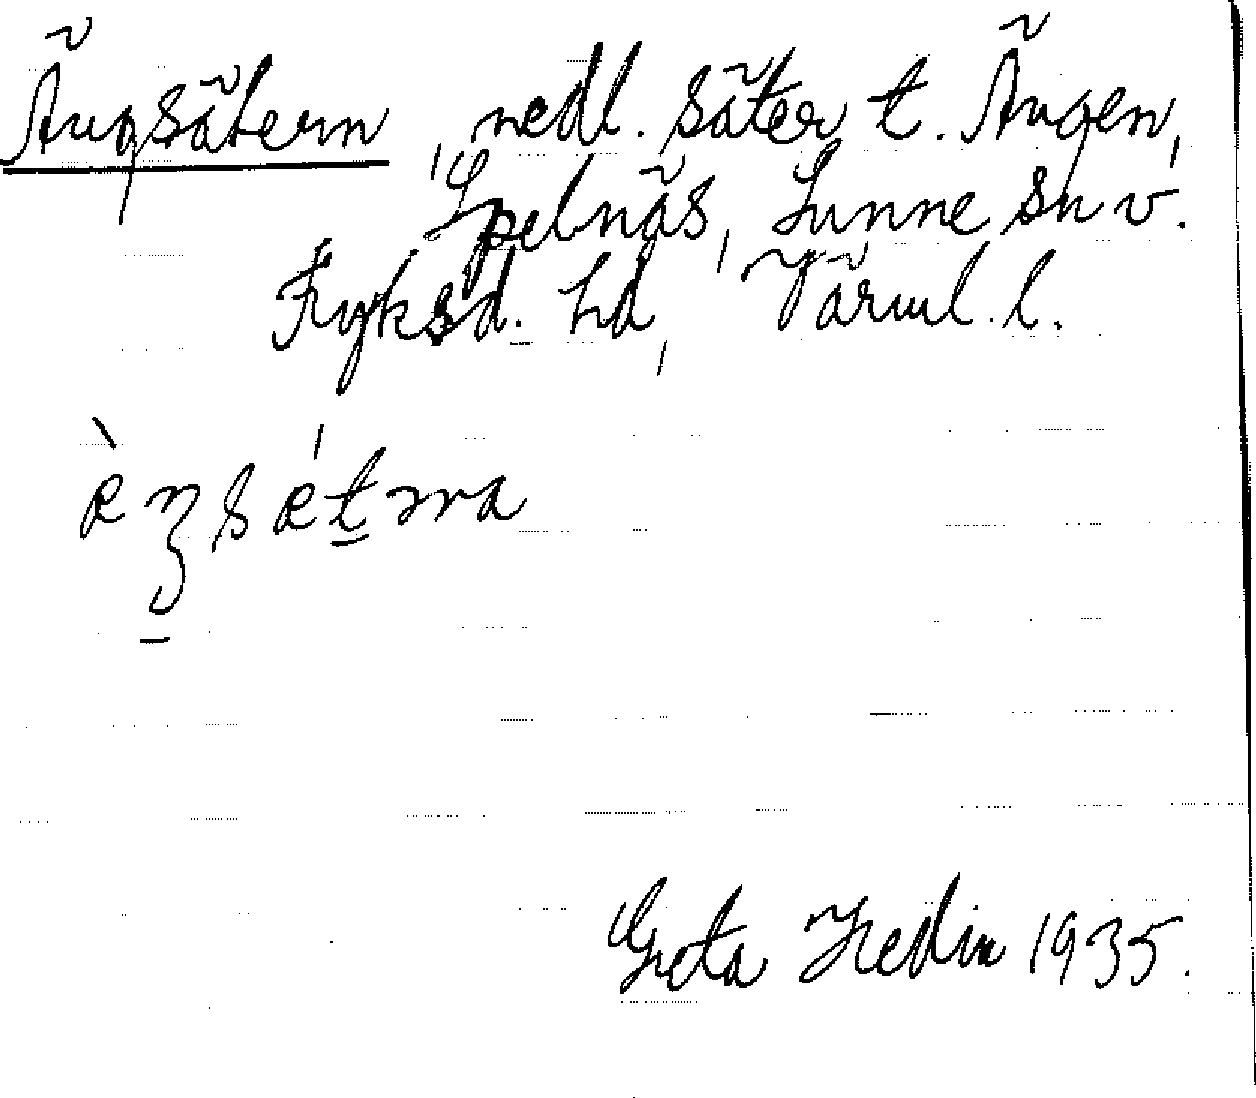 Ängsätern, nedl. säter t. Ängen,
Spelnäs, Sunne sn v.
Fryksd. hd, Värml. l.
Greta Hedin 1935.